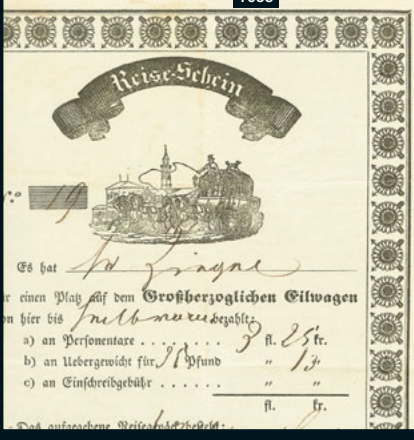 Reise-Schein
N.º 19
Es hat Hr Ziegel
für einen Platz auf dem Großherzoglichen Eilwagen
von hier bis Heilbronn bezahlt:
a) an Personentaxe . . . . . . . 3 fl. 25 kr.
b) an Uebergewicht für Pfund " 13 "
c) an Einschreibgebühr . . . . . . " "
fl. kr.
Das aufgegebene Reisegepäck besteht: